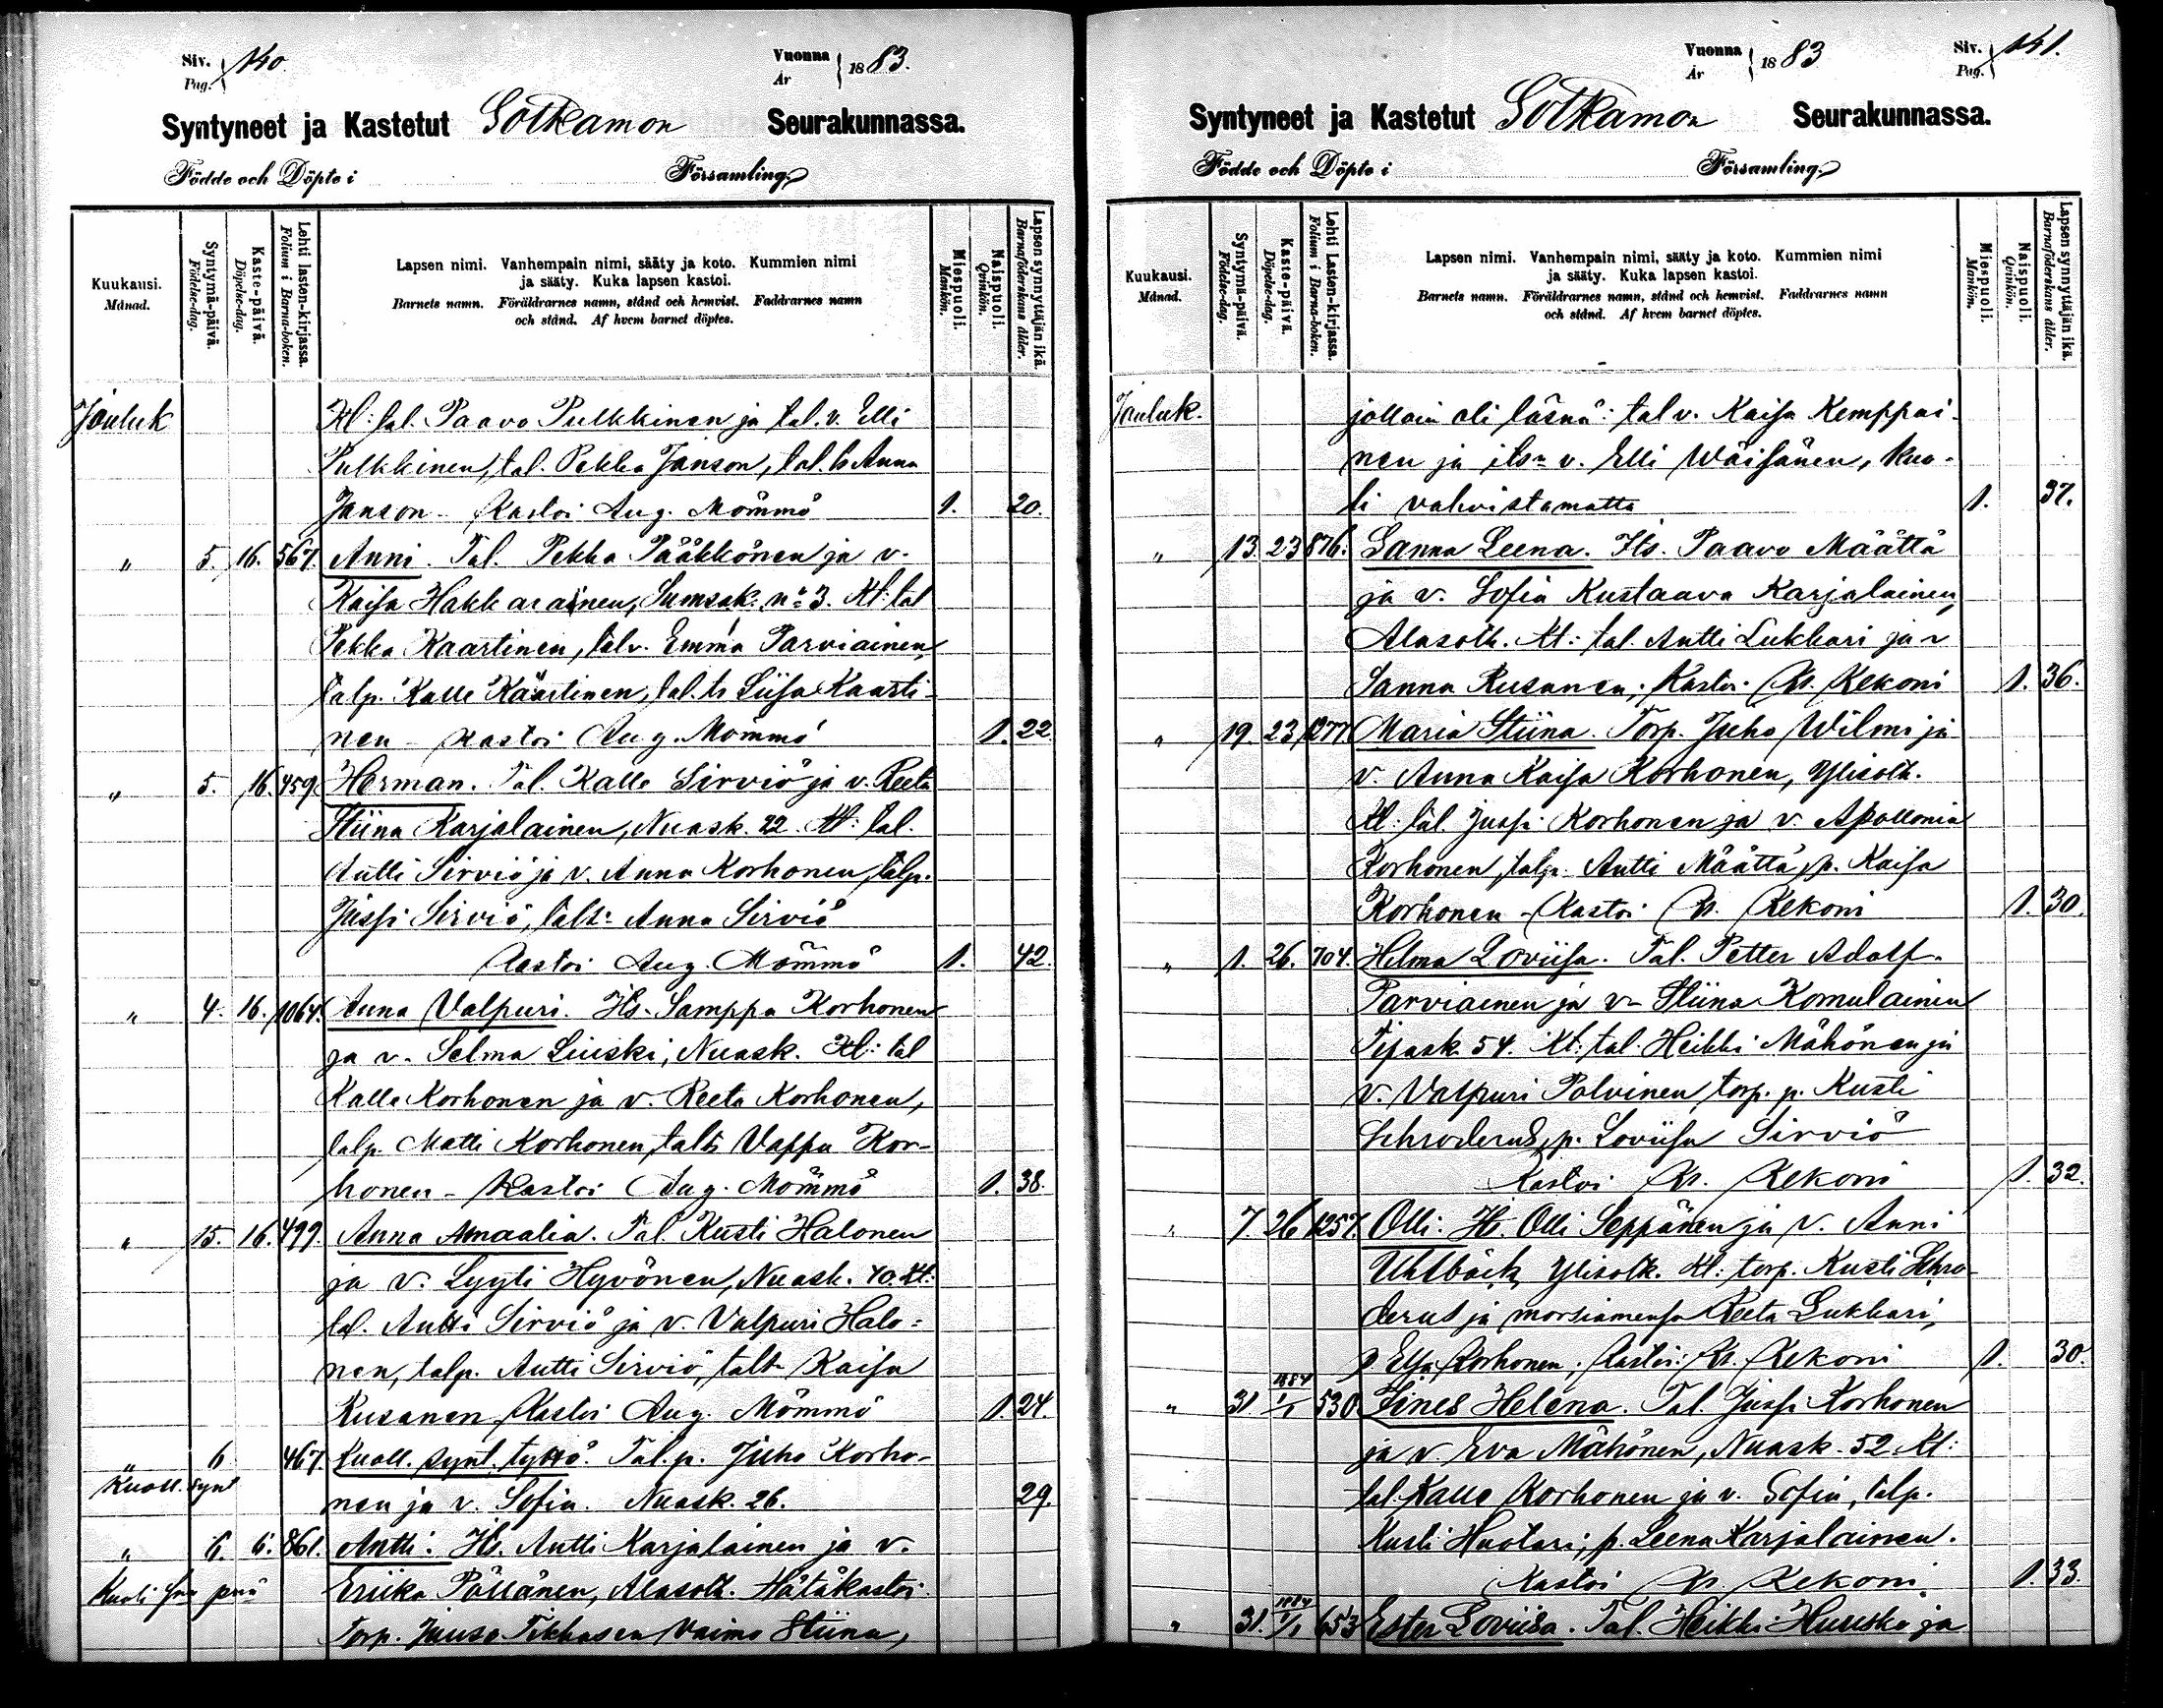 Siv. Pag. 140. Vuonna År 1883.
Syntyneet ja Kastetut Sotkamon Seurakunnassa.
Födde och Döpte i Församling.
Kuukausi. Månad. Syntymä-päivä. Födelse-dag. Kaste-päivä. Döpelse-dag. Lehti lasten-kirjassa. Folium i Barna-boken.
Lapsen nimi. Vanhempain nimi, sääty ja koto. Kummien nimi
ja sääty. Kuka lapsen kastoi.
Barnets namn. Föräldrarnes namn, stånd och hemvist. Faddrarnes namn
och stånd. Af hvem barnet döptes.
Miespuoli. Mankön. Naispuoli. Qvinkön. Lapsen synnyttäjän ikä. Barnaföderskans ålder.
Jouluk Kl: tal. Paavo Pulkkinen ja tal. v. Elli
Pulkkinen, tal. Pekka Janson, tal. tr Anna
Janson - Kastoi Aug. Mömmö 1. 20.
" 5. 16. 567. Anni. Tal. Pekka Pääkkönen ja v.
Kaisa Hakkarainen, Sumsak. n:o 3. Kl: tal
Pekka Kaartinen, talv. Emma Parviainen
talp. Kalle Kaartinen, tal. tr Liisa Kaarti-
nen - Kastoi Aug. Mömmö 1. 22.
" 5. 16. 459. Herman. Tal. Kalle Sirviö ja v. Reeta
Stiina Karjalainen, Nuask. 22. Kl: tal.
Antti Sirviö ja v. Anna Korhonen, talp.
Jussi Sirviö, talt: Anna Sirviö
Kastoi Aug. Mömmö 1. 42.
" 4. 16. 1064. Anna Valpuri. Its. Samppa Korhonen
ja v. Selma Liuski, Nuask. Kl: tal
Kalle Korhonen ja v. Reeta Korhonen,
talp. Matti Korhonen, talt. Vappu Kor-
honen - Kastoi Aug. Mömmö 1. 38.
" 15. 16. 499. Anna Amaalia. Tal. Kusti Halonen
ja v. Lyyti Hyvönen, Nuask. 40. Kl:
tal. Antti Sirviö ja v. Valpuri Halo-
nen, talp. Antti Sirviö, talt Kaisa
Rusanen, Kastoi Aug. Mömmö 1. 24.
" 6. 467. Kuoll. synt. tyttö. Tal. p. Juho Korho-
Kuoll. synt nen ja v. Sofia. Nuask. 26. 29.
" 6. 6. 861. Antti. Its. Antti Karjalainen ja v.
Kuoli Eriika Pöllänen, Alasotk. Hätäkastoi
Torp. Tikkasen vaimo Stiina,
Vuonna År 1883 Siv. Pag. 141.
Syntyneet ja Kastetut Sotkamon Seurakunnassa.
Födde och Döpte i Församling.
Kuukausi. Månad. Syntymä-päivä. Födelse-dag. Kaste-päivä. Döpelse-dag. Lehti Lasten-kirjassa. Folium i Barna-boken.
Lapsen nimi. Vanhempain nimi, sääty ja koto. Kummien nimi
ja sääty. Kuka lapsen kastoi.
Barnets namn. Föräldrarnes namn, stånd och hemvist. Faddrarnes namn
och stånd. Af hvem barnet döptes.
Miespuoli. Mankön. Naispuoli. Qvinkön. Lapsen synnyttäjän ikä. Barnaföderskans ålder.
Jouluk. jolloin oli läsnä: tal v. Kaisa Kemppai-
nen ja its: v. Elli Wäisänen, kuo-
li vahvistamatta 1. 37.
" 13. 23 876. Sanna Leena. Its. Paavo Määttä
ja v. Sofia Kustaava Karjalainen,
Alasotk. Kl: tal. Antti Lukkari ja v
Sanna Rusanen; Kastoi Kr. Rekoni 1. 36.
" 19. 23 1277. Maria Stiina. Torp. Juho Wilmi ja
v. Anna Kaisa Korhonen, Ylisotk.
Kl: tal. Jussi Korhonen ja v. Apollonia
Korhonen, talp. Antti Määttä, p. Kaisa
Korhonen - Kastoi Kr. Rekoni 1. 30.
" 1. 26. 704. Helma Loviisa. Tal. Petter Adolf
Parviainen ja v. Stiina Komulainen
Tipask. 54. Kl: tal. Heikki Mähönen ja
v. Valpuri Polvinen, torp. p. Kusti
Schroderus, p. Loviisa Sirviö
Kastoi Kr. Rekoni 1. 32.
" 7. 26 1257. Olli: It. Olli Seppänen ja v. Anni
Uhlbäck, Ylisotk. Kl: torp. Kusti Schro-
derus ja morsiamensa Reeta Lukkari,
p Elsa Korhonen. Kastoi: Kr. Rekoni 1. 30.
" 31. 1884 1/1 530 Iines Helena. Tal. Jussi Korhonen
ja v. Eva Mähönen, Nuask. 52 Kl:
tal. Kalle Korhonen ja v. Sofia, talp.
Kusti Huotari, p. Leena Karjalainen.
Kastoi Kr. Rekoni. 1. 33.
" 31. 1884 1/1 653 Ester Loviisa. Tal. Heikki Huusko ja